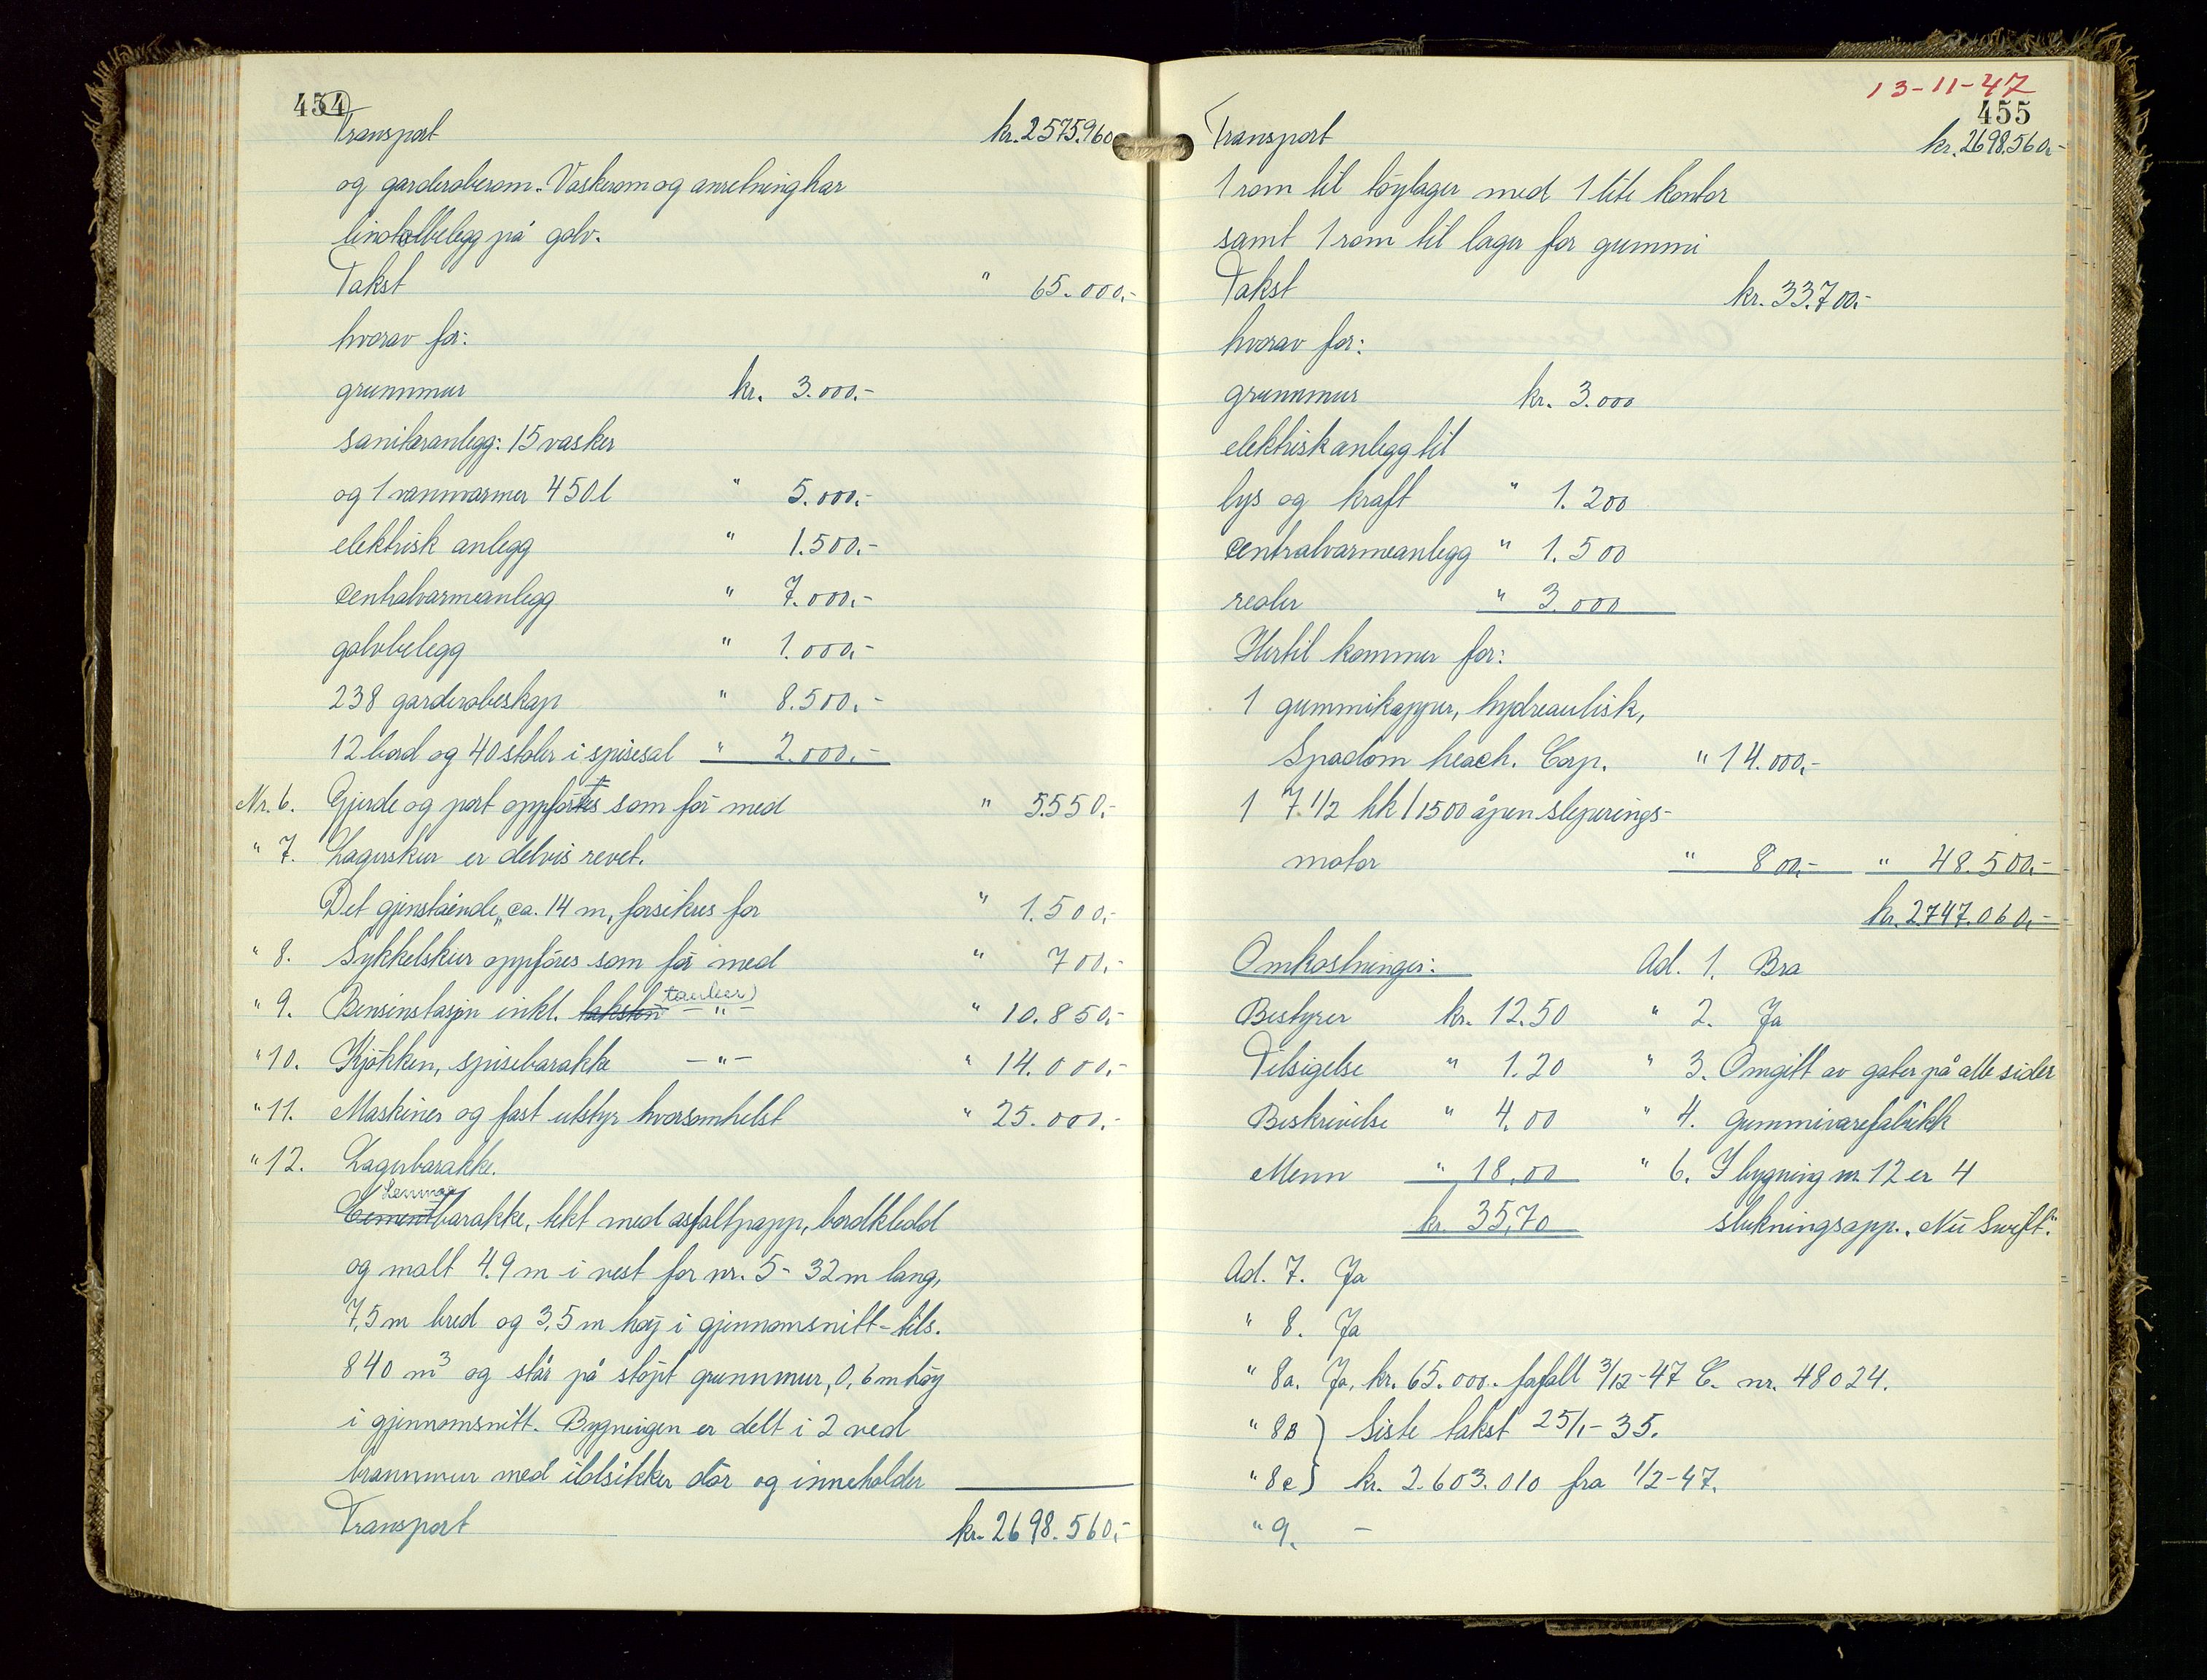 454
Transport kr. 2575.960
og garderoberom. Vaskerom og anretning har
linolbelegg på golv.
Takst " 65.000,-
hvorav for:
grunnmur kr. 3.000.-
sanitæranlegg: 15 vasker
og 1 vannvarmer 450 l " 5.000.-
elektrisk anlegg " 1.500,-
centralvarmeanlegg " 7.000,-
golvbelegg " 1.000,-
238 garderobeskap " 8.500,-
12 bord og 40 stoler i spisesal " 2.000,-
Nr. 6. Gjerde og port oppföres som för med " 5.550,-
" 7. Lagerskur er delvis revet.
Det gjenstående, ca. 14 m, forsikres for " 1.500,-
" 8. Sykkelskur oppföres som för med " 700,-
tanker)
" 9. Bensinstasjon inkl. taksten -"- " 10.850,-
" 10. Kjökken, spisebarakke -"- " 14.000,-
" 11. Maskiner og fast utstyr hvorsomhelst " 25.000,-
" 12. Lagerbarakke.
Lemmer
Cementbarakke, tekt med asfaltpapp, bordkledd
og malt 4.9 m i vest for nr. 5 - 32 m lang,
7,5 m bred og 3,5 m höy i gjennomsnitt - tils.
840 m³ og står på stöpt grunnmur, 0,6 m höy
i gjennomsnitt. Bygningen er delt i 2 ved
brannmur med ildsikker dör og inneholder
Transport kr. 2698.560,-
13-11-47
455
Transport kr. 2698.560,-
1 rom til töylager med 1 lite kontor
samt 1 rom til lager for gummi
Takst kr. 33.700,-
hvorav for:
grunnmur kr. 3.000
elektrisk anlegg til
lys og kraft " 1.200
centralvarmeanlegg " 1.500
reoler " 3.000
Hertil kommer for:
1 gummikapper, hydreaulisk,
Spadom heach. Corp. " 14.000,-
1 7 1/2 hk / 1500 åpen sleperings-
motor " 800,- " 48.500,-
kr. 2747.060,-
Omkostninger: Ad. 1. Bra
Bestyrer kr. 12.50 " 2. Ja
Tilsigelse " 1.20 " 3. Omgitt av gater på alle sider
Beskrivelse " 4.00 " 4. gummivarefabrikk
Menn " 18,00 " 6. I bygning nr. 12 er 4
kr. 35,70 slukningsapp. "Nu Swift".
Ad. 7. Ja
" 8. Ja
" 8a. Ja, kr. 65.000.- fafalt 3/12-47 C. nr. 48024.
" 8B } Siste takst 25/1-35.
" 8c } kr. 2.603.010 fra 1/2-47.
" 9. -